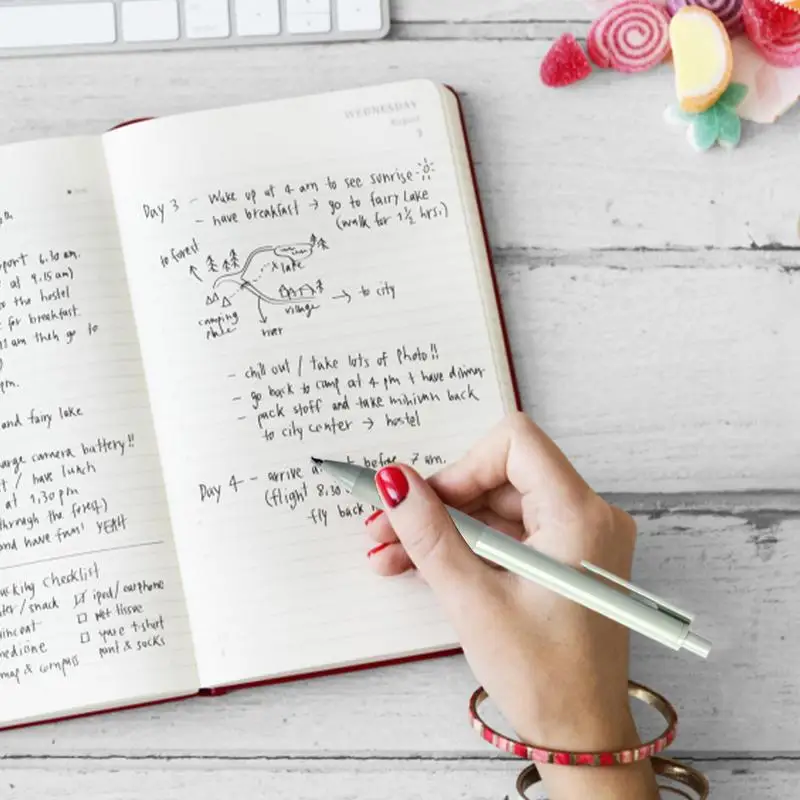 port 6.30 am.
at 9.15 am)
to the hostel
for breakfast.
am then go to
pm.
and fairy lake
charge camera battery!!
/ have lunch
at 1.30 pm
through the forest)
and have fun! YEAH
packing checklist
water/snack ipod/earphone
raincoat wet tissue
medicine spare t-shirt
map & compass pant & socks
WEDNESDAY
August
9
Day 3 - Wake up at 4 am to see sunrise
- have breakfast → go to fairy Lake
(walk for 1 1/2 hrs.)
to forest
x lake
→ to city
camping village
place river
- chill out / take lots of photo!!
- go back to camp at 4 pm + have dinner
- pack stoff and take minivan back
to city center → hostel
Day 4 - arrive before 7 am.
(flight 8.30
fly back